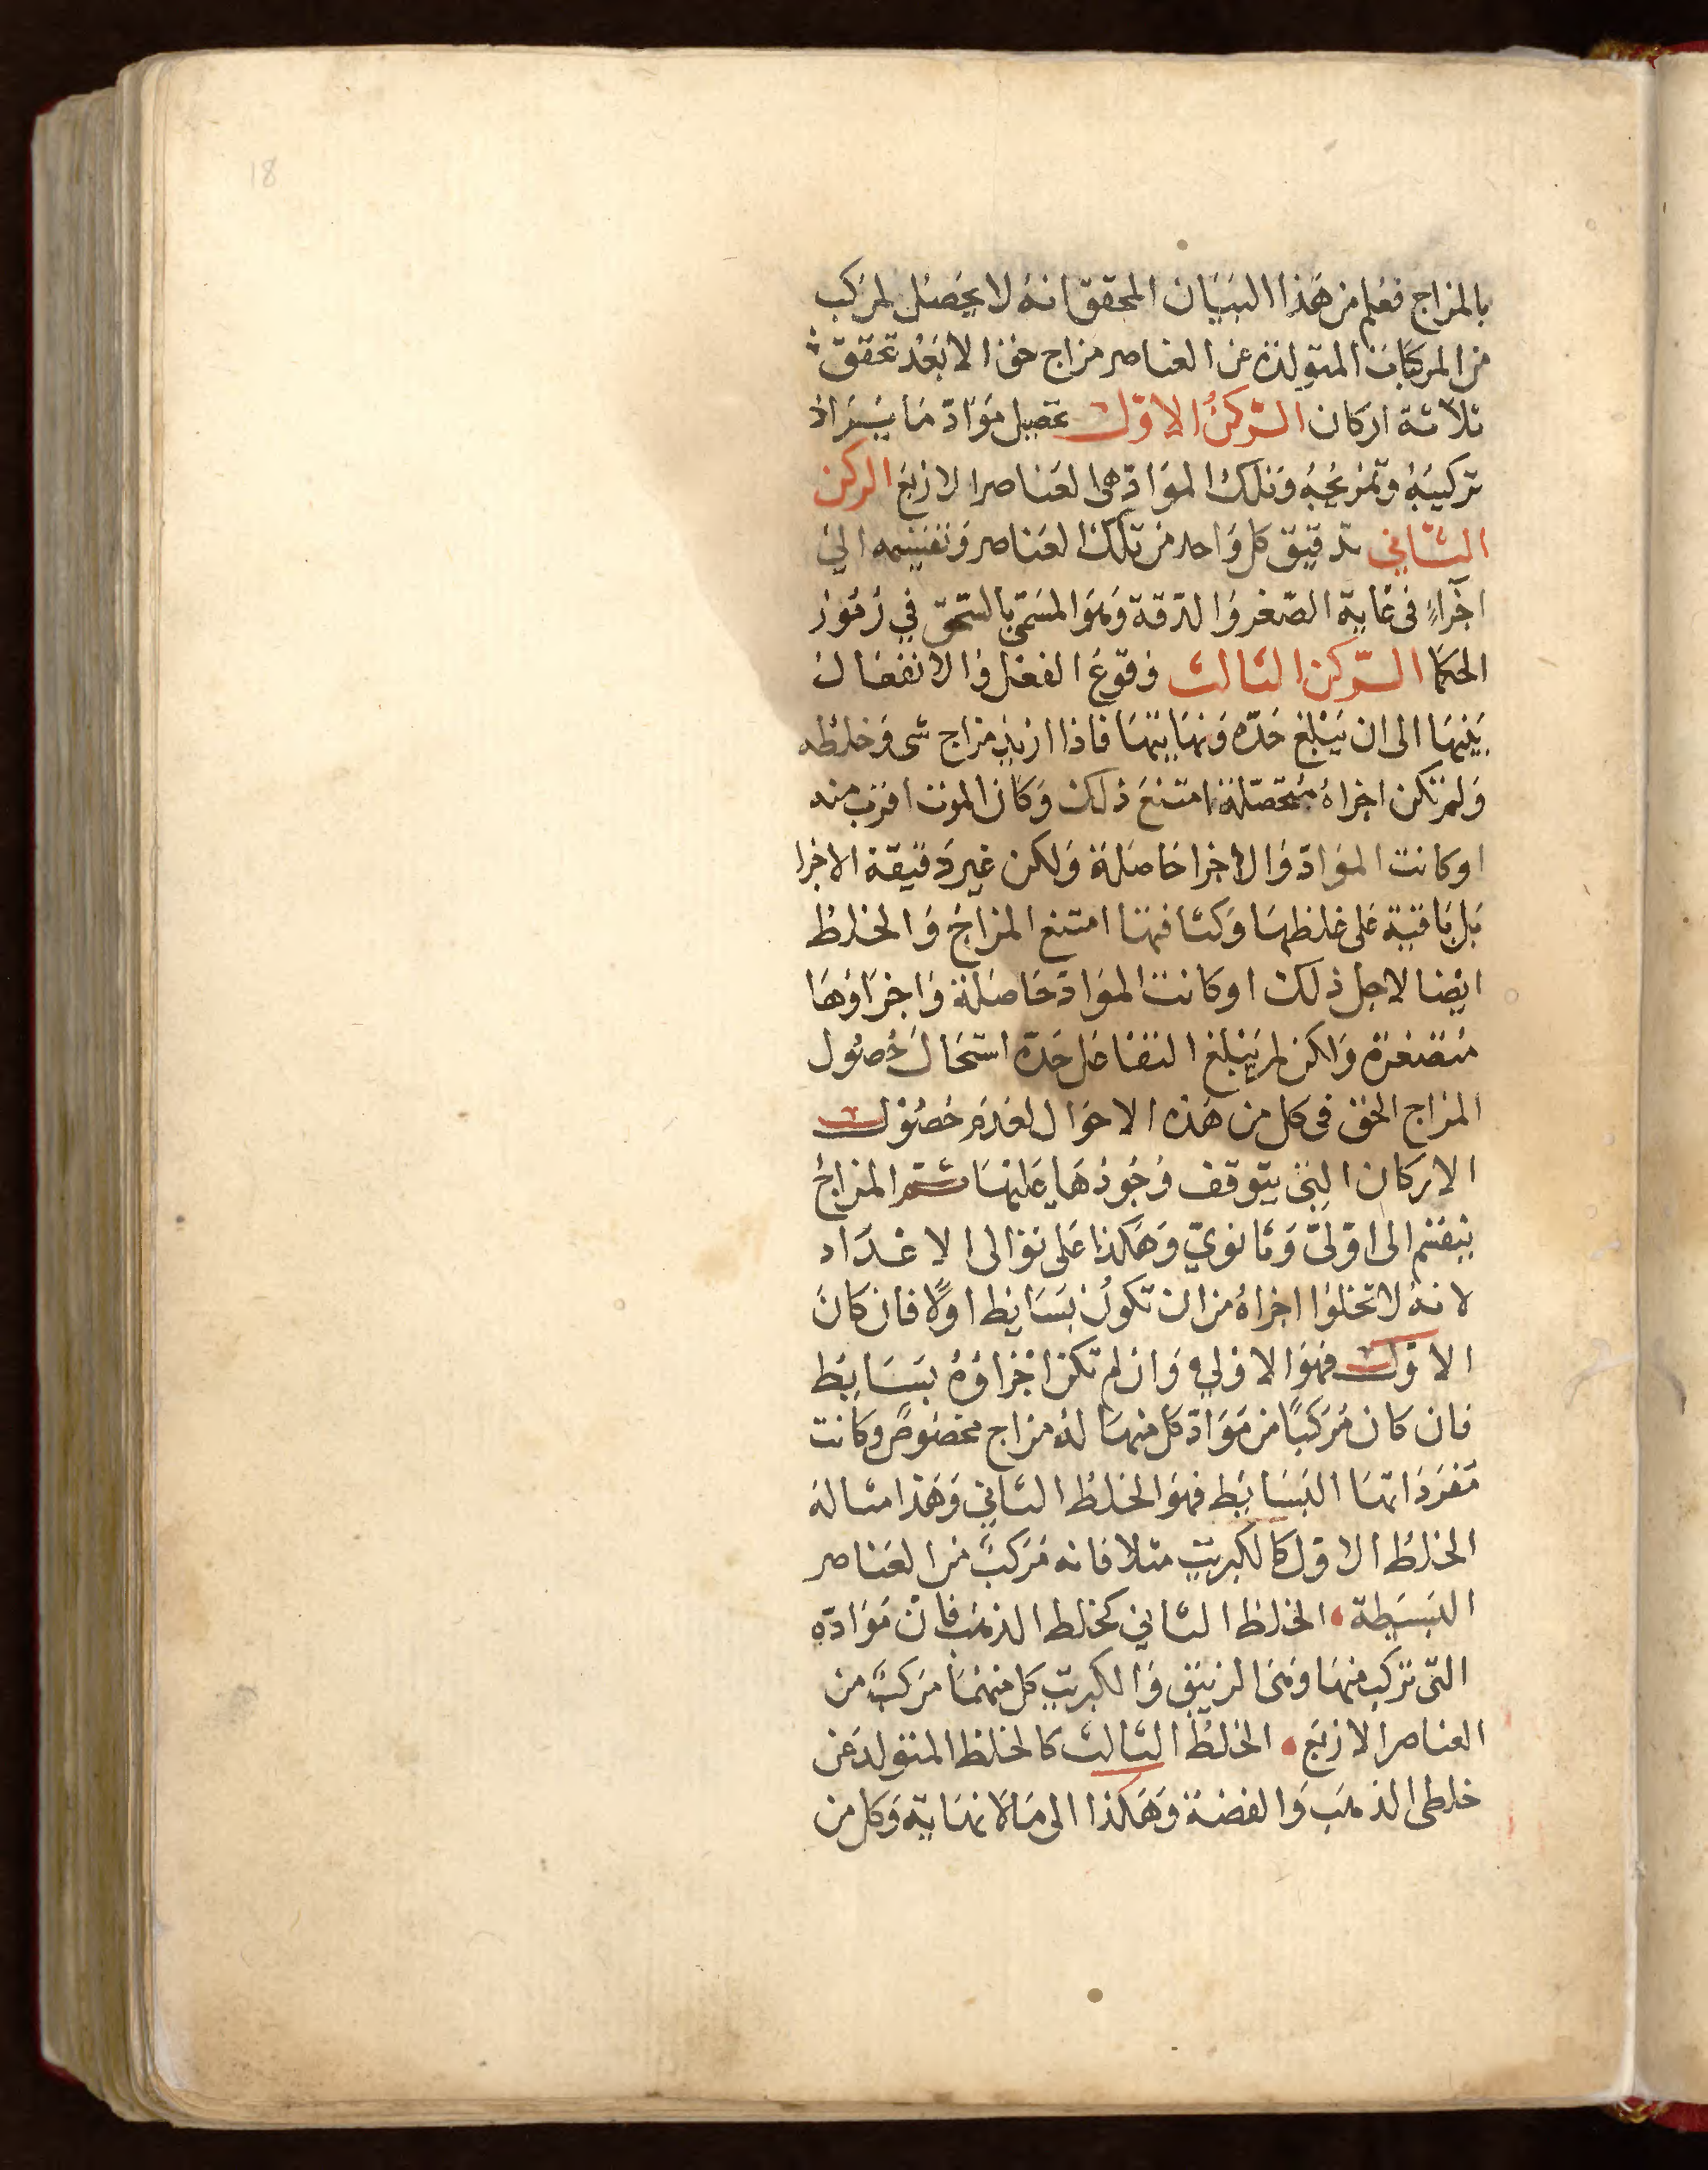 18
بالمزاج فعلم من هذا البيان المحقق انه لا يحصل لمركب
من المركبات المتولدة عن العناصر مزاج حق الا بعد تحقق
ثلاثة اركان الركن الاول تحصيل مواد ما يراد
تركيبه وتمزيجه وتلك المواد هى العناصر الاربع الركن
الثاني تدقيق كل واحد من تلك العناصر وتقسيمه الى
اجزاءٍ فى غاية الصغر والدقة وهو المسمى بالسحق في رموز
الحكما الركن الثالث وقوع الفعل والانفعال
بينها الى ان يبلغ حده ونهايتها فاذا اريد مزاج شى وخلطه
ولم تكن اجزاه متحصلة امتنع ذلك وكان الموت اقرب منه
او كانت المواد والاجزا حاصلة ولكن غير دقيقة الاجزا
بل باقية على غلظها وكثافتها امتنع المزاج والخلط
ايضا لاجل ذلك او كانت المواد حاصلة واجزاؤها
متصغرة ولكن لم يبلغ التفاعل حده استحال حصول
المزاج الحق فى كل من هذه الاحوال لعدم حصول
الاركان التى يتوقف وجودها عليها ثم المزاج
ينقسم الى اولىّ وثانويّ وهكذا على توالى الاعداد
لانه لا تخلوا اجزاه من ان تكون بسايط اولًا فان كان
الاول فهو الاولي وان لم تكن اجزاؤه بسايط
فان كان مركبًا من مواد كل منها له مزاج مخصوص وكانت
مفرداتها البسايط فهو الخلط الثاني وهذا مثاله
الخلط الاول كالكبريت مثلا فانه مركب من العناصر
البسيطة • الخلط الثاني كخلط الذهب فان مواده
التى تركب منها وهى الزيبق والكبريت كل منهما مركب من
العناصر الاربع • الخلط الثالث كالخلط المتولد عن
خلطى الذهب والفضة وهكذا الى مالانهاية وكل من